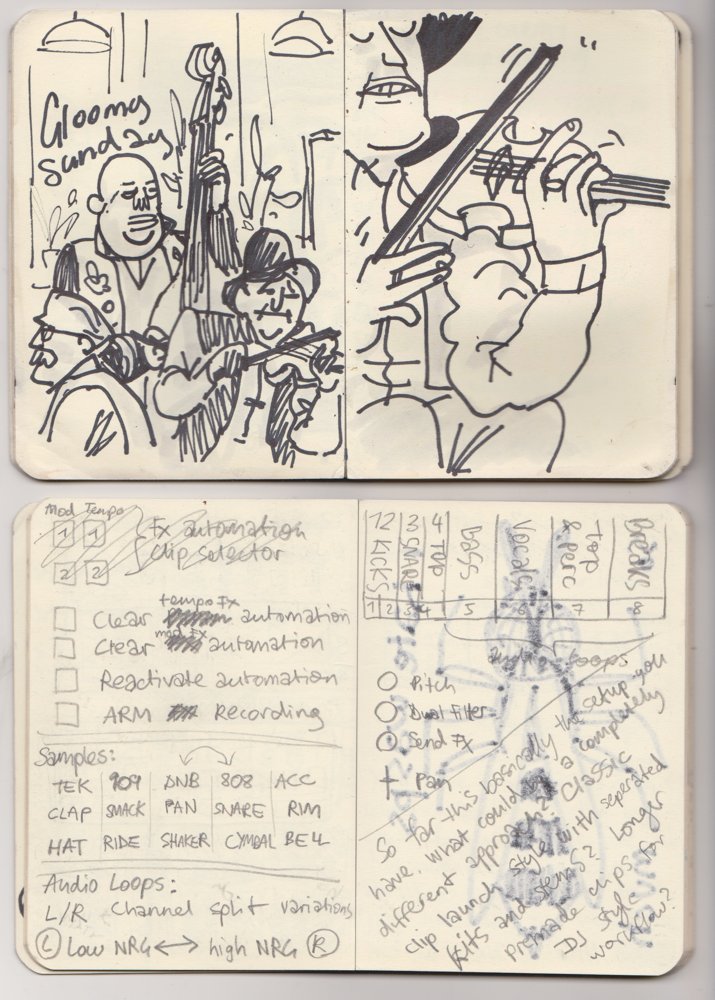 Gloomy
Sunday
Mod Tempo
1 1 Fx automation
Clip selector
2 2
tempo fx
Clear automation
mod fx
Clear automation
Reactivate automation
ARM Recording
Samples:
TEK 909 DNB 808 ACC
CLAP SMACK PAN SNARE RIM
HAT RIDE SHAKER CYMBAL BELL
Audio Loops:
L/R Channel split variations
L Low NRG ↔ high NRG R
12 KICKS
3 SNARE
4 TOP
Bass
Vocals
top & perc
Breaks
1 2 3 4 5 6 7 8
audio loops
Pitch
Dual Filter
Send Fx
Pan
So far this basically the setup you
have. What could be a completely
different approach? Classic
clip launch style with seperated
kits and stems? Longer
premade clips for
DJ style
workflow?